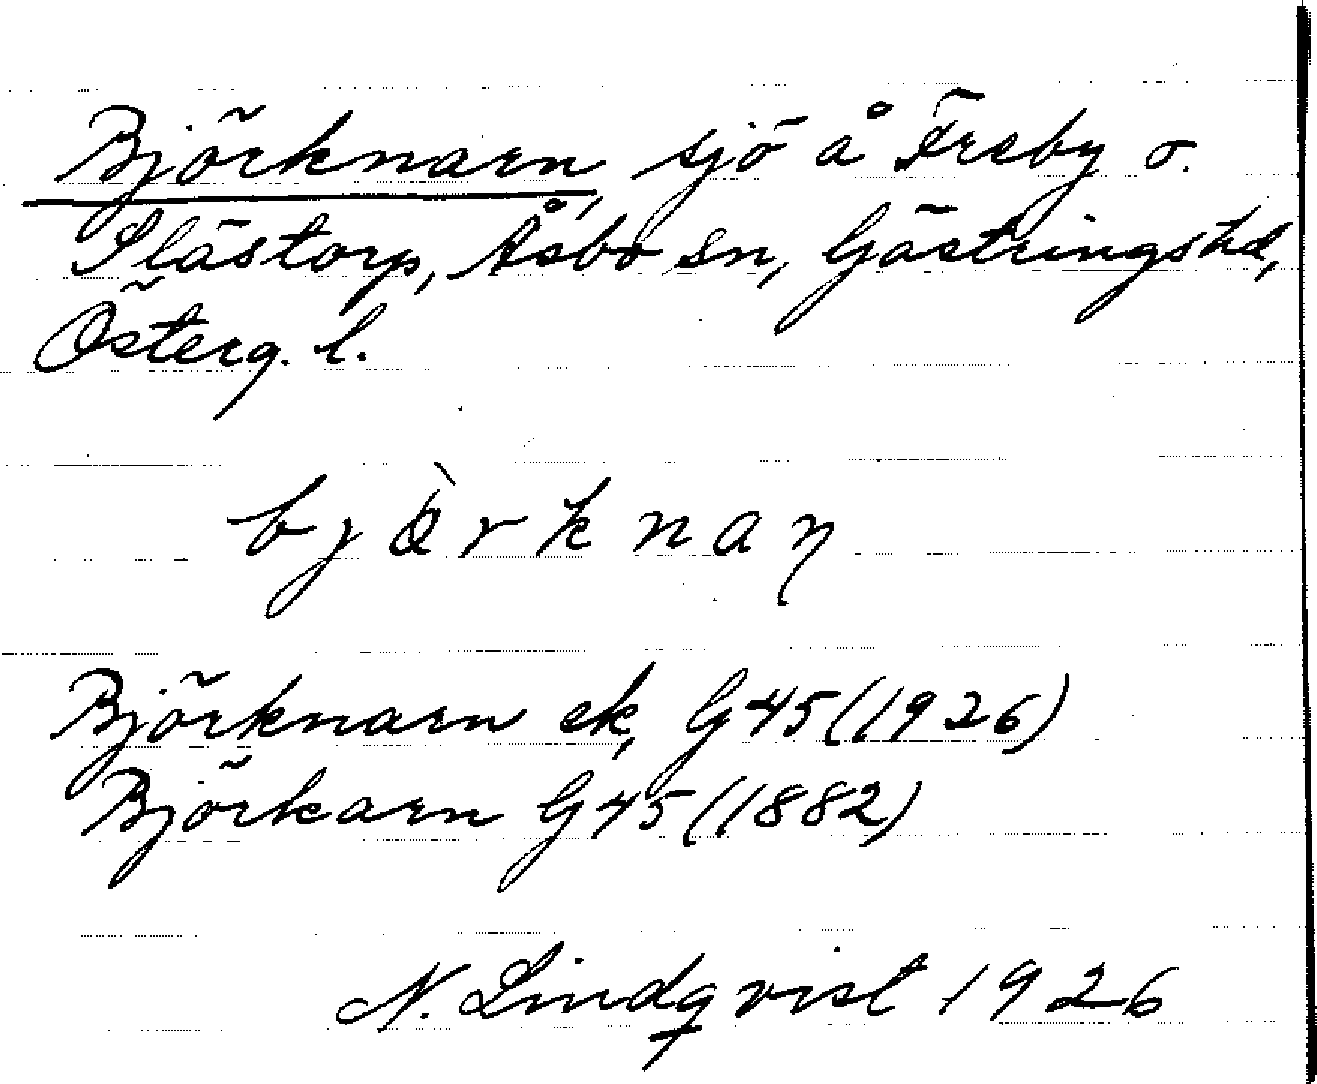 Björknarn, sjö å Freby o.
Slästorp, Åsbo sn, Göstrings hd,
Österg. l.
bjòrknaɳ
Björknarn ek, G45(1926)
Björkarn G45(1882)
N. Lindqvist 1926